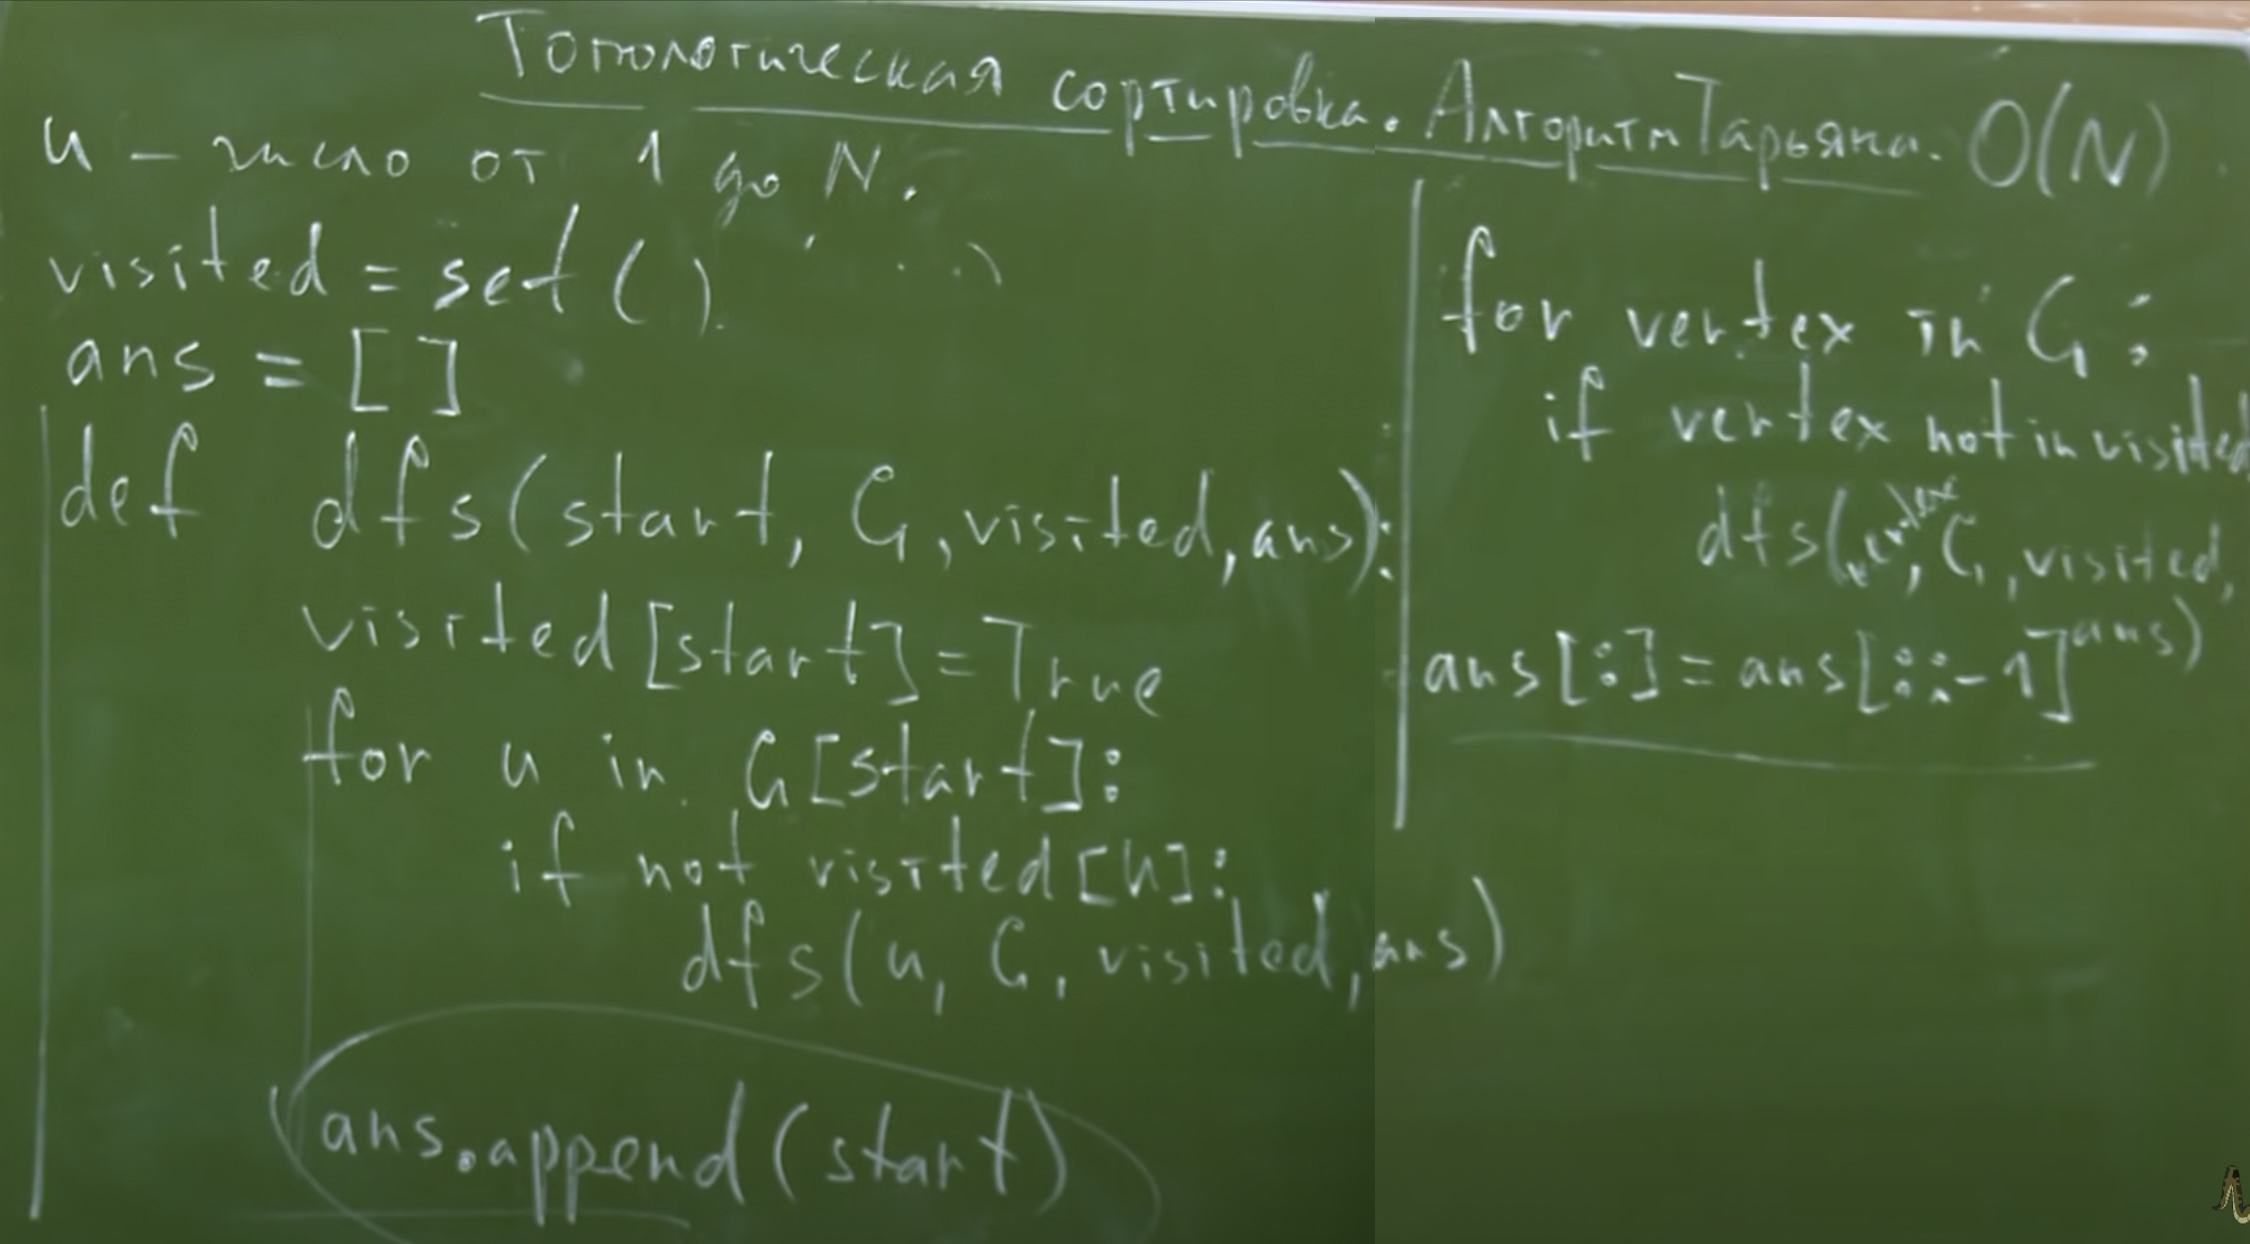 Топологическая сортировка. Алгоритм Тарьяна. O(N)
u - число от 1 до N.
visited = set()
ans = []
def dfs(start, G, visited, ans):
visited[start] = True
for u in G[start]:
if not visited[u]:
dfs(u, G, visited, ans)
ans.append(start)
for vertex in G:
if vertex not in visited
dfs(vertex, G, visited,
ans)
ans[:] = ans[::-1]